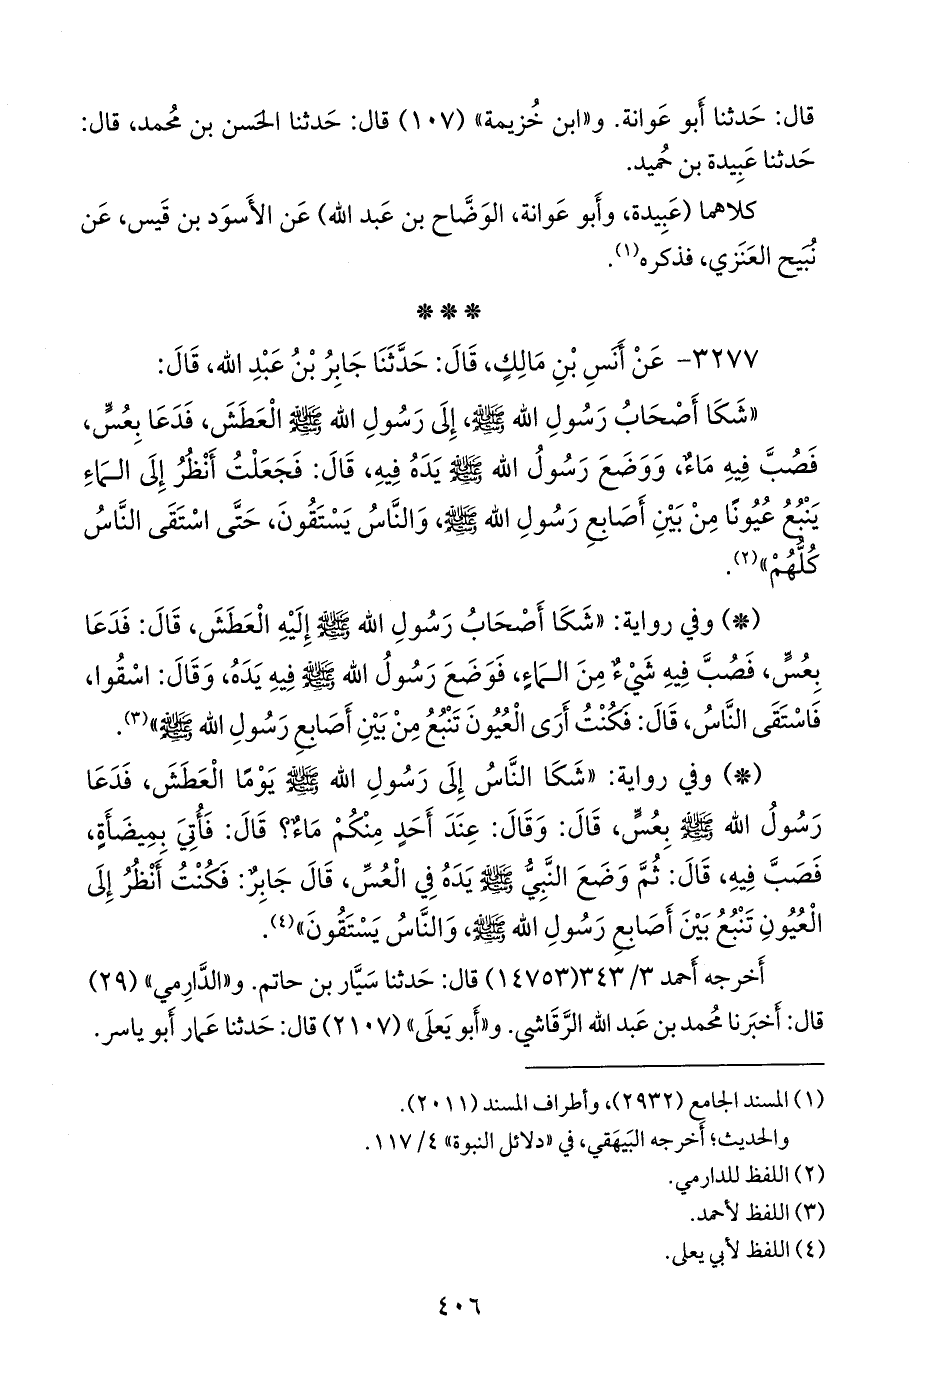 قال: حَدثنا أَبو عَوانة. و«ابن خُزيمة» (١٠٧) قال: حَدثنا الحَسن بن مُحمد، قال:
حَدثنا عَبِيدة بن حُميد.
كلاهما (عَبِيدة، وأَبو عَوانة، الوَضَّاح بن عَبد الله) عَن الأَسوَد بن قَيس، عَن
نُبَيح العَنَزي، فذكره(١).
* * *
٣٢٧٧- عَنْ أَنَسِ بْنِ مَالِكٍ، قَالَ: حَدَّثَنَا جَابِرُ بْنُ عَبْدِ الله، قَالَ:
«شَكَا أَصْحَابُ رَسُولِ الله ﷺ، إِلَى رَسُولِ الله ﷺ الْعَطَشَ، فَدَعَا بِعُسٍّ،
فَصُبَّ فِيهِ مَاءٌ، وَوَضَعَ رَسُولُ الله ﷺ يَدَهُ فِيهِ، قَالَ: فَجَعَلْتُ أَنْظُرُ إِلَى الْمَاءِ
يَنْبُعُ عُيُونًا مِنْ بَيْنِ أَصَابِعِ رَسُولِ الله ﷺ، وَالنَّاسُ يَسْتَقُونَ، حَتَّى اسْتَقَى النَّاسُ
كُلُّهُمْ»(٢).
(*) وفي رواية: «شَكَا أَصْحَابُ رَسُولِ الله ﷺ إِلَيْهِ الْعَطَشَ، قَالَ: فَدَعَا
بِعُسٍّ، فَصُبَّ فِيهِ شَيْءٌ مِنَ الْمَاءِ، فَوَضَعَ رَسُولُ الله ﷺ فِيهِ يَدَهُ، وَقَالَ: اسْقُوا،
فَاسْتَقَى النَّاسُ، قَالَ: فَكُنْتُ أَرَى الْعُيُونَ تَنْبُعُ مِنْ بَيْنِ أَصَابِعِ رَسُولِ الله ﷺ»(٣).
(*) وفي رواية: «شَكَا النَّاسُ إِلَى رَسُولِ الله ﷺ يَوْمًا الْعَطَشَ، فَدَعَا
رَسُولُ الله ﷺ بِعُسٍّ، قَالَ: وَقَالَ: عِنْدَ أَحَدٍ مِنْكُمْ مَاءٌ؟ قَالَ: فَأُتِيَ بِمِيضَأَةٍ،
فَصَبَّ فِيهِ، قَالَ: ثُمَّ وَضَعَ النَّبِيُّ ﷺ يَدَهُ فِي الْعُسِّ، قَالَ جَابِرٌ: فَكُنْتُ أَنْظُرُ إِلَى
الْعُيُونِ تَنْبُعُ بَيْنَ أَصَابِعِ رَسُولِ الله ﷺ، وَالنَّاسُ يَسْتَقُونَ»(٤).
أَخرجه أَحمد ٣/ ٣٤٣(١٤٧٥٣) قال: حَدثنا سَيَّار بن حاتم. و«الدَّارِمي» (٢٩)
قال: أَخبَرنا مُحمد بن عَبد الله الرَّقاشي. و«أَبو يَعلَى» (٢١٠٧) قال: حَدثنا عَمار أَبو ياسر.
(١) المسند الجامع (٢٩٣٢)، وأطراف المسند (٢٠١١).
والحديث؛ أَخرجه البَيهَقي، في «دلائل النبوة» ٤/ ١١٧.
(٢) اللفظ للدارمي.
(٣) اللفظ لأحمد.
(٤) اللفظ لأبي يعلى.
٤٠٦